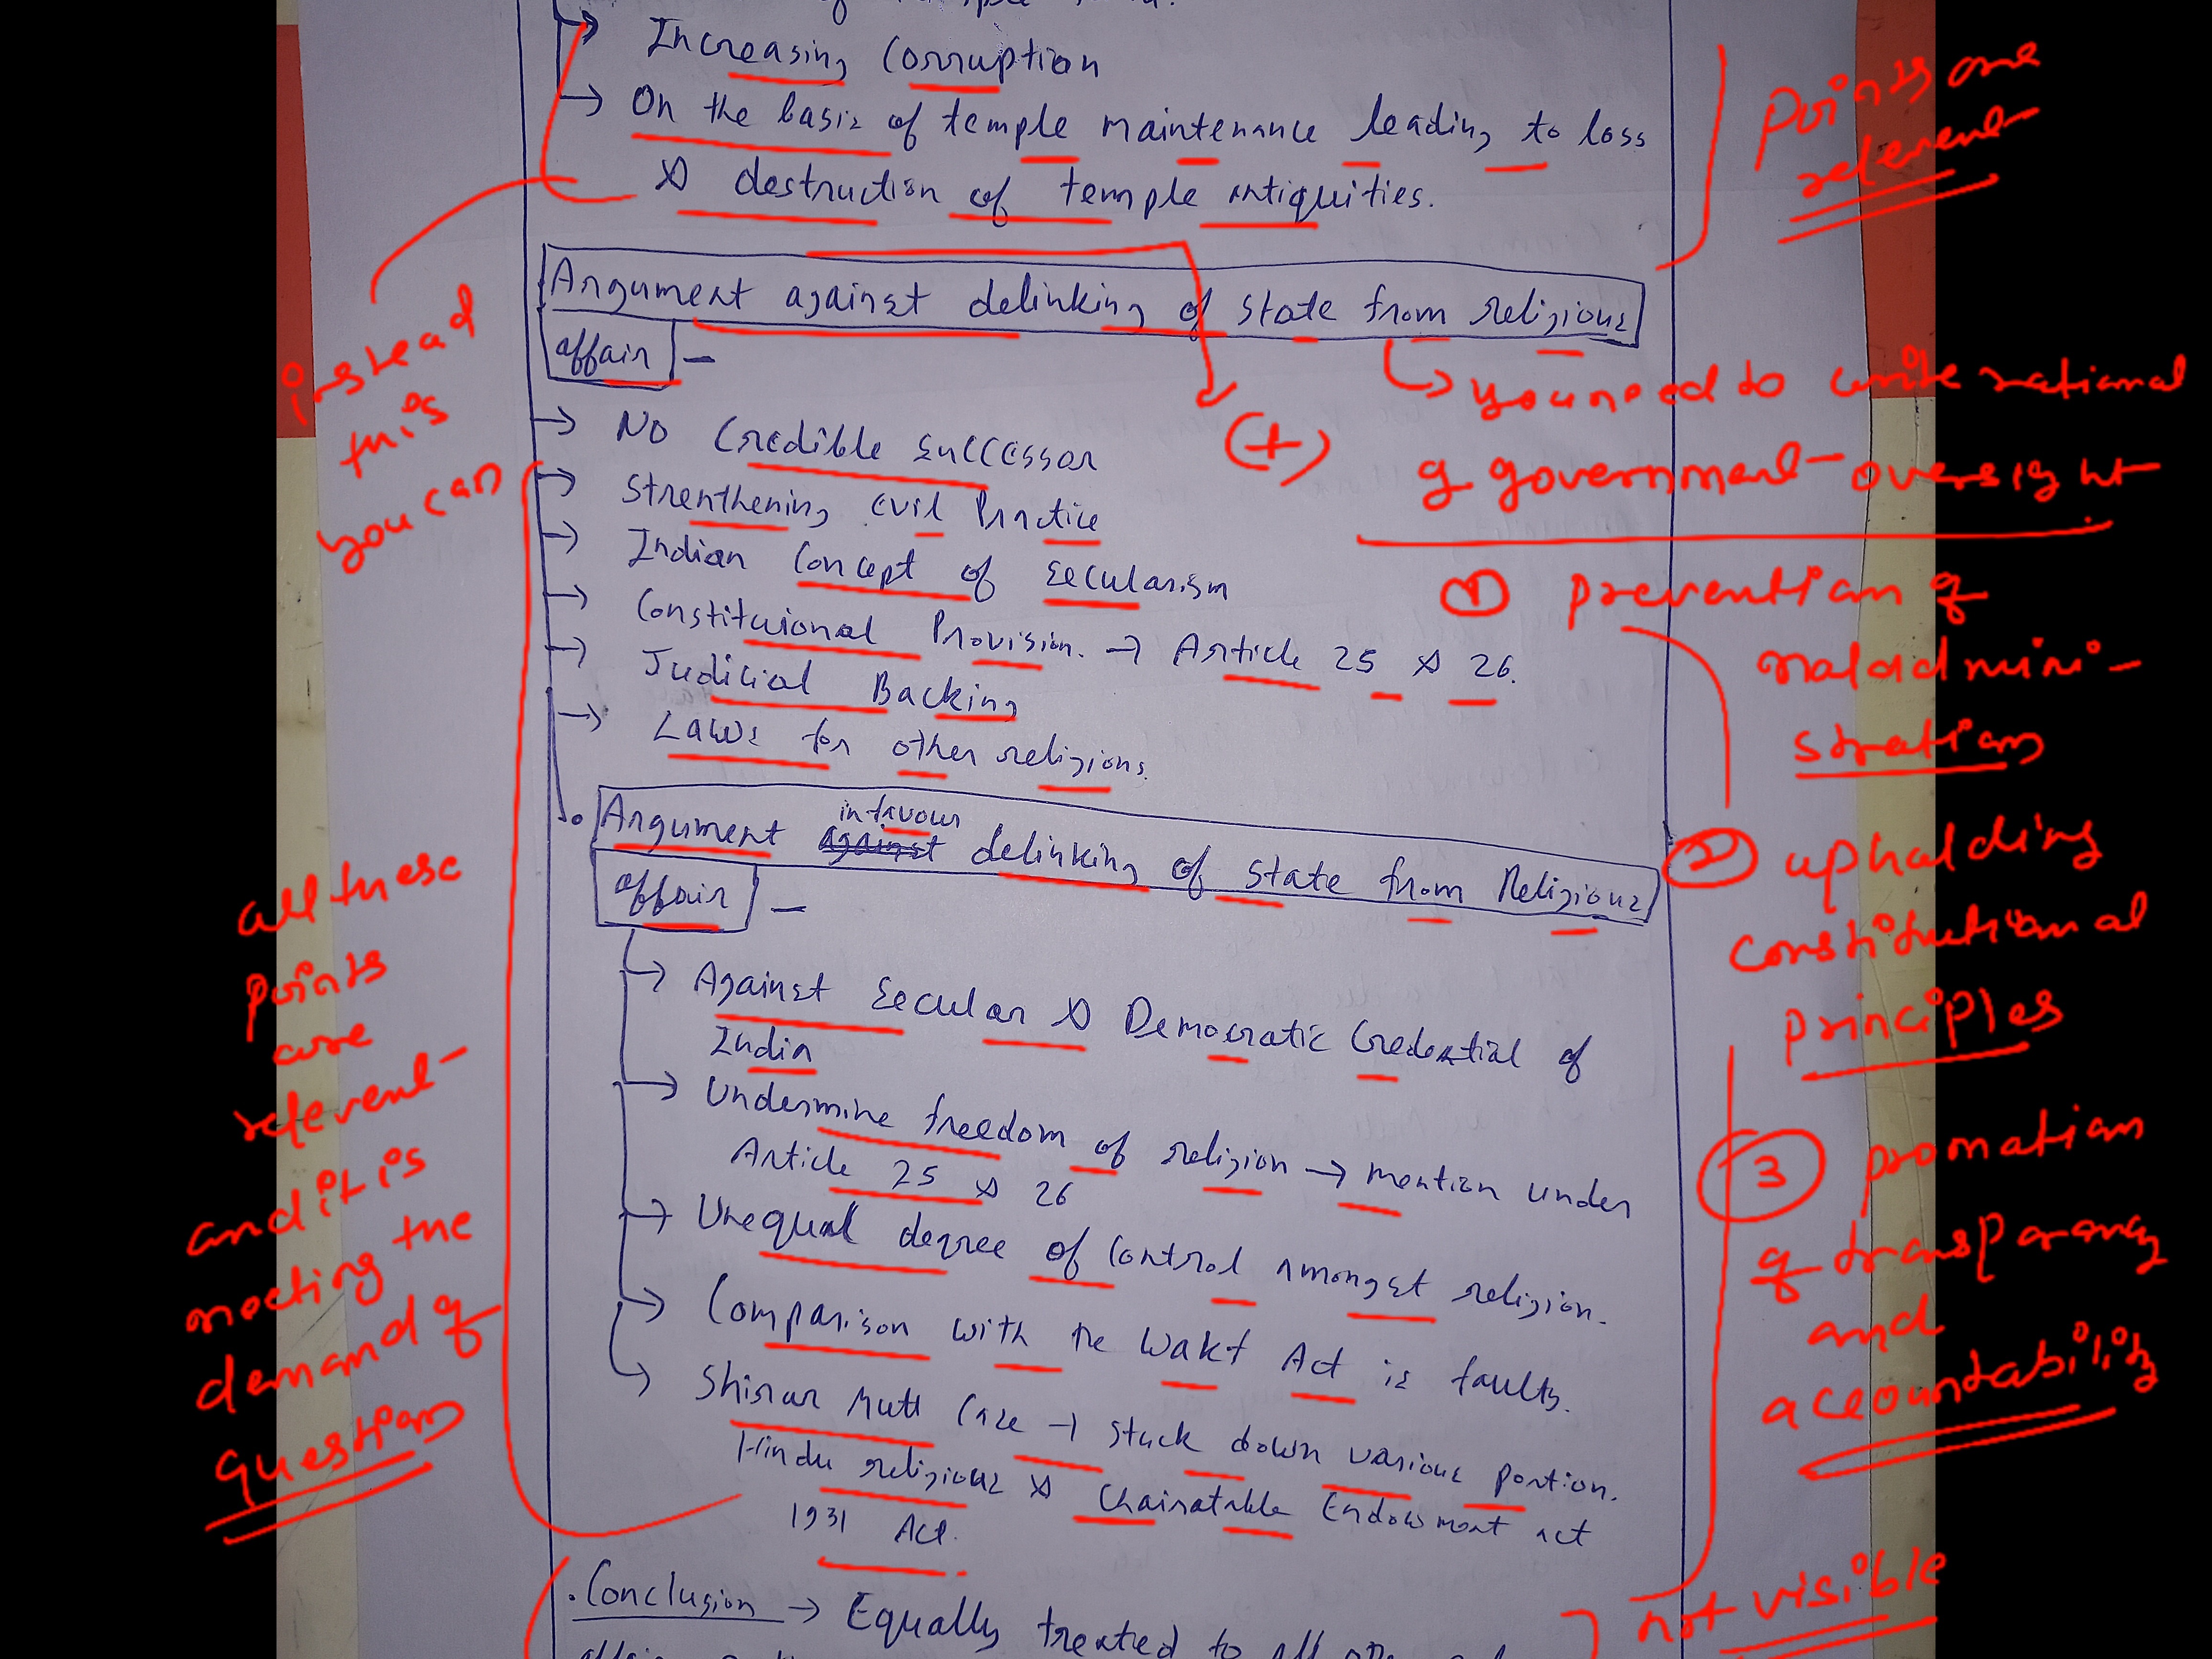 Increasing Corruption
→ On the basis of temple maintenance leading to loss
& destruction of temple antiquities.
Points are
relevent
instead
this
you can
Argument against delinking of state from religious
affair -
→ you need to write rational
of government oversight
(+)
→ No Credible Successor
→ Strenthening evil Practice
→ Indian Concept of Secularism
→ Constituional Provision. → Article 25 & 26.
→ Judicial Backing
→ Laws for other religions.
① prevention of
maladmini-
stration
② upholding
constitutional
principles
③ promotion
of transparancy
and
accountability
all these
points
are
relevent
and it is
meeting the
demand of
question
Argument against in favour delinking of state from Religious
affair -
→ Against Secular & Democratic Credential of
India
→ Undermine freedom of religion → mention under
Article 25 & 26
→ Unequal degree of Control amongst religion.
→ Comparison with the Wakf Act is faulty.
→ Shirur Mutt Case → Stuck down various portion.
Hindu religious & Chairatable Endowment act
1931 Act.
• Conclusion → Equally treated to all
not visible